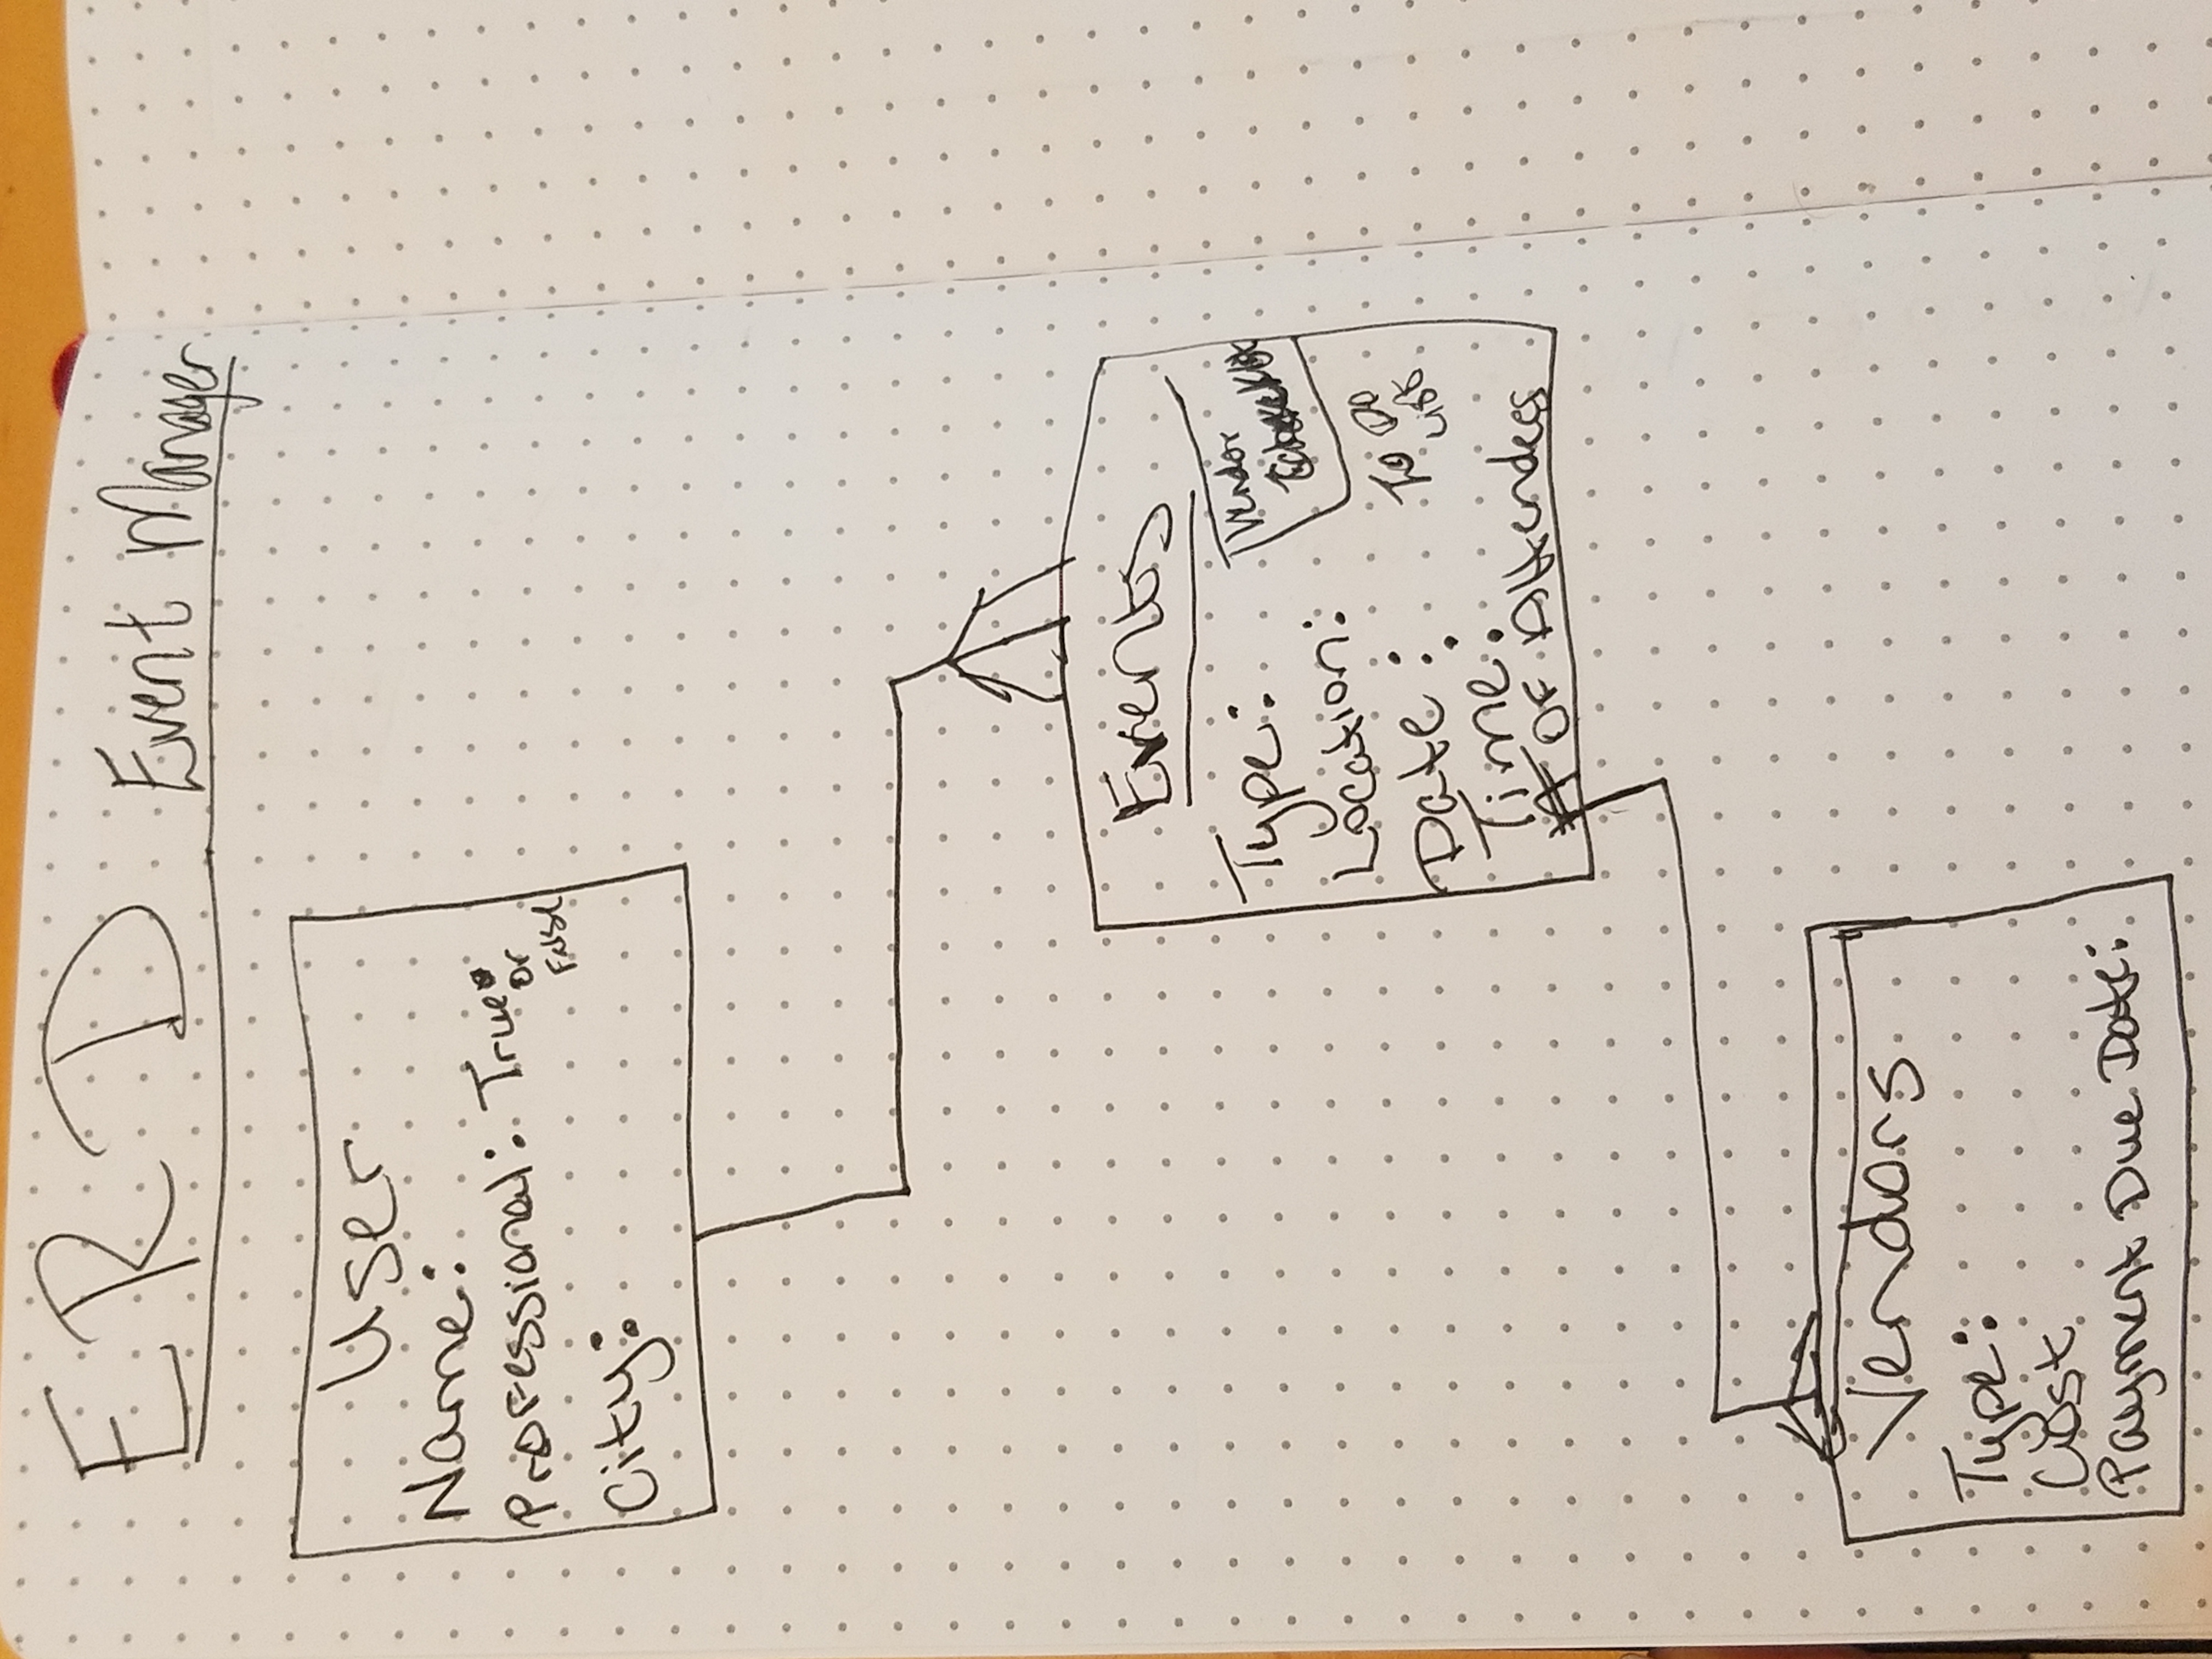 ERD Event Manager
User
Name:
Professional: True or False
City:
Events
Type:
Location:
Date:
Time:
# of Attendees
Vendor
To Do
List
Vendors
Type:
Cost
Payment Due Date: